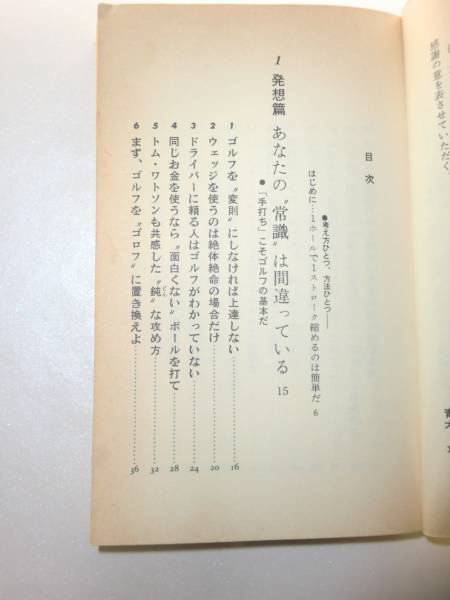 感謝の意を表させていただく
目次
●考え方ひとつ、方法ひとつ――
はじめに…1ホールで1ストローク縮めるのは簡単だ 6
1 発想篇 あなたの〝常識〟は間違っている 15
●「手打ち」こそゴルフの基本だ
1 ゴルフを〝変則〟にしなければ上達しない……16
2 ウェッジを使うのは絶体絶命の場合だけ……20
3 ドライバーに頼る人はゴルフがわかっていない……24
4 同じお金を使うなら〝面白くない〟ボールを打て……28
5 トム・ワトソンも共感した〝鈍〟な攻め方……32
どん
6 まず、ゴルフを〝ゴロフ〟に置き換えよ……36